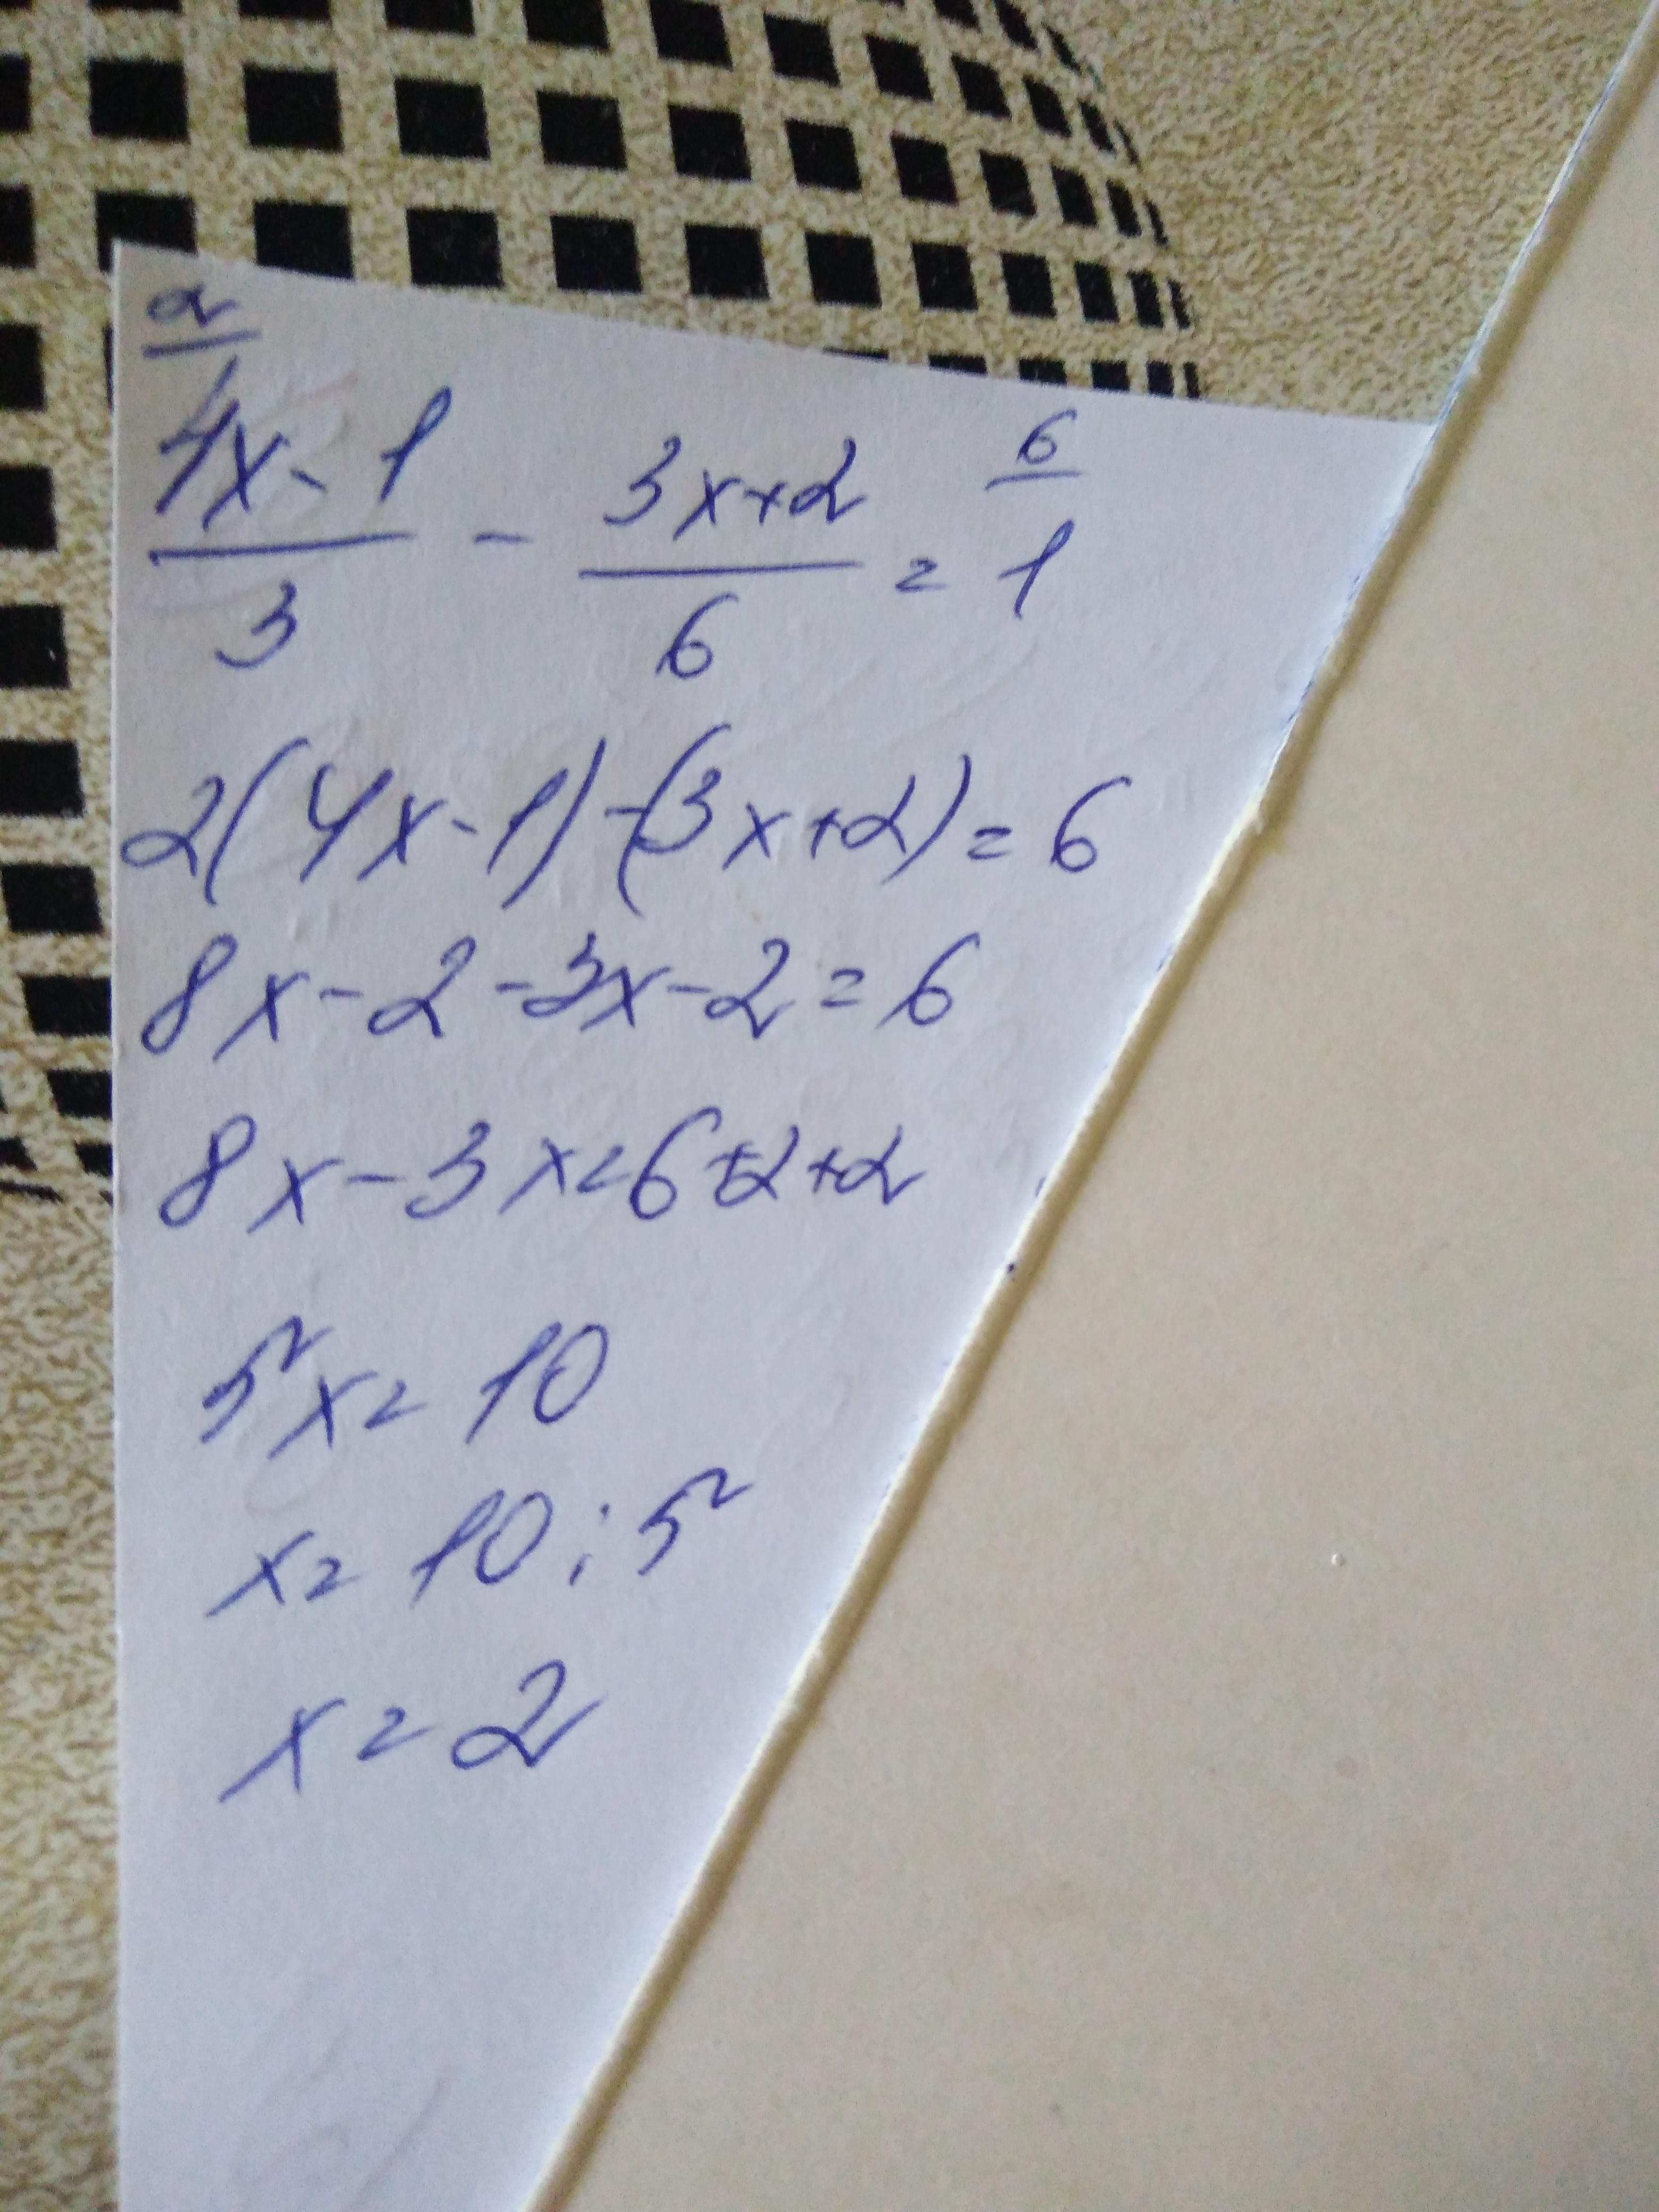 2 6
4x-1 / 3 - 3x+2 / 6 = 1
2(4x-1)-(3x+2)=6
8x-2-3x-2=6
8x-3x=6+2+2
5x=10
x=10:5
x=2